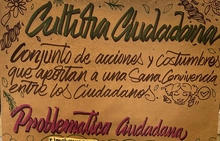 Cultura Ciudadana
Conjunto de acciones y costumbres
que aportan a una Sana Convivencia
entre los Ciudadanos.
Problematica Ciudadana